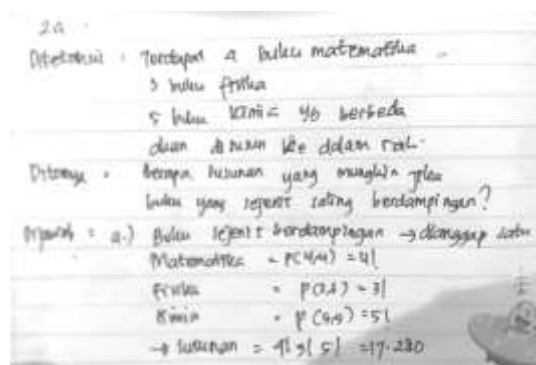 2a.
Diketahui : Terdapat 4 buku matematika
3 buku fisika
5 buku kimia yg berbeda
akan disusun ke dalam rak.
Ditanya : berapa susunan yang mungkin jika
buku yang sejenis saling berdampingan?
Dijawab = a.) Buku sejenis berdampingan → dianggap satu
Matematika = P(4,4) = 4!
Fisika = P(3,3) = 3!
Kimia = P(5,5) = 5!
→ susunan = 4! 3! 5! = 17.280